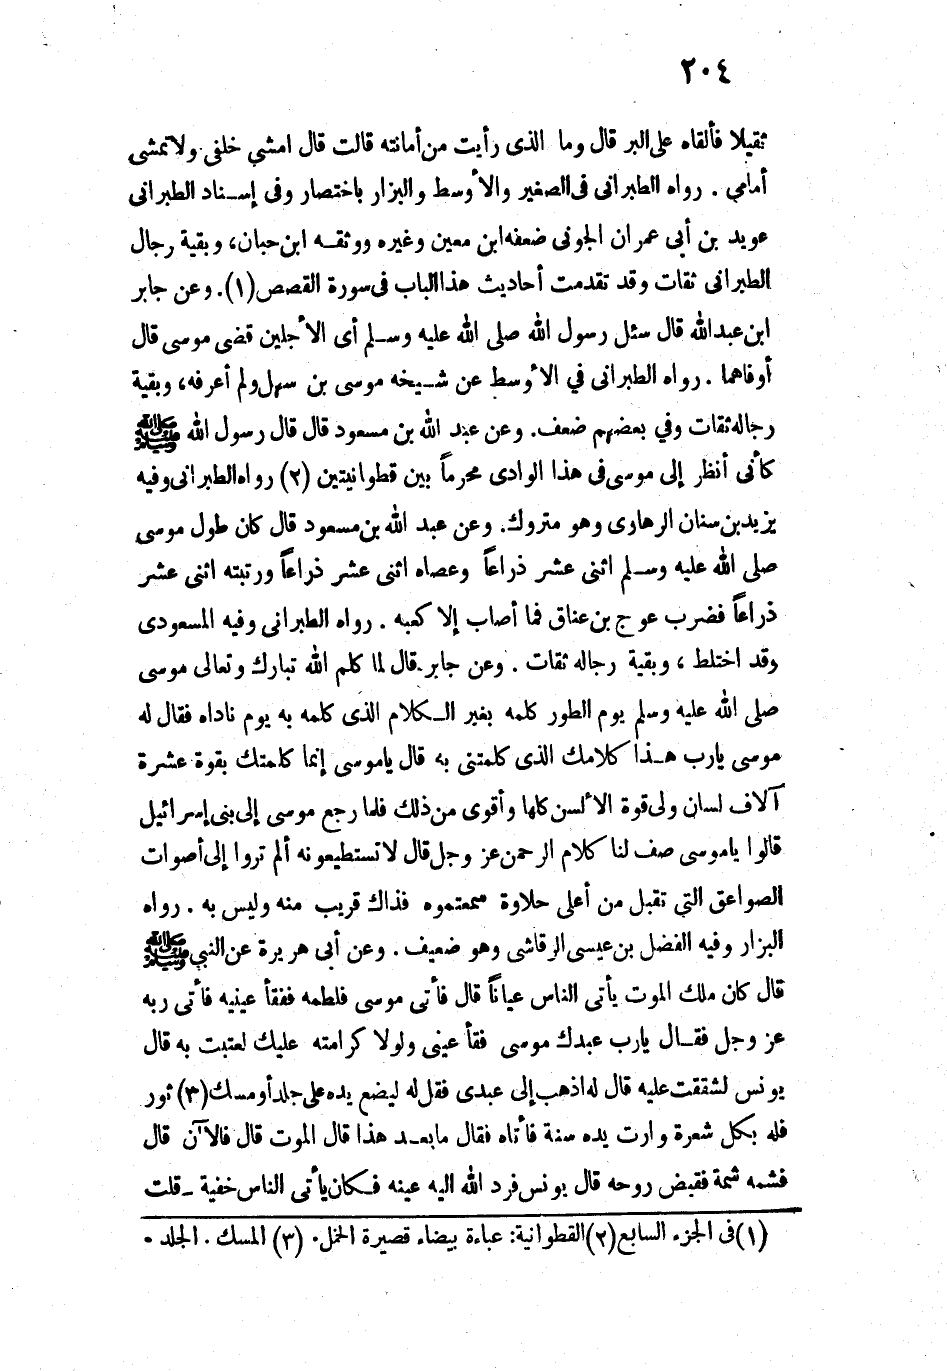 ٢٠٤
ثقيلا فألقاه على البر قال وما الذى رأيت من أمانته قالت قال امشي خلفى ولا تمشى
أمامي . رواه الطبرانى فى الصغير والأوسط والبزار باختصار وفى إسناد الطبرانى
عويد بن أبي عمران الجونى ضعفه ابن معين وغيره ووثقه ابن حبان، وبقية رجال
الطبرانى ثقات وقد تقدمت أحاديث هذا الباب فى سورة القصص (١). وعن جابر
ابن عبد الله قال سئل رسول الله صلى الله عليه وسلم أى الأجلين قضى موسى قال
أوفاهما . رواه الطبرانى في الأوسط عن شيخه موسى بن سهل ولم أعرفه، وبقية
رجاله ثقات وفي بعضهم ضعف. وعن عبد الله بن مسعود قال قال رسول الله ﷺ
كأنى أنظر إلى موسى فى هذا الوادى محرماً بين قطوانيتين (٢) رواه الطبرانى وفيه
يزيد بن سنان الرهاوى وهو متروك. وعن عبد الله بن مسعود قال كان طول موسى
صلى الله عليه وسلم اثنى عشر ذراعاً وعصاه اثنى عشر ذراعاً ورتبته اثنى عشر
ذراعاً فضرب عوج بن عناق فما أصاب إلا كعبه . رواه الطبرانى وفيه المسعودى
وقد اختلط ، وبقية رجاله ثقات . وعن جابر قال لما كلم الله تبارك وتعالى موسى
صلى الله عليه وسلم يوم الطور كلمه بغير الكلام الذى كلمه به يوم ناداه فقال له
موسى يارب هذا كلامك الذى كلمتنى به قال ياموسى إنما كلمتك بقوة عشرة
آلاف لسان ولى قوة الألسن كلها وأقوى من ذلك فلما رجع موسى إلى بنى إسرائيل
قالوا ياموسى صف لنا كلام الرحمن عز وجل قال لا تستطيعونه ألم تروا إلى أصوات
الصواعق التي تقبل من أعلى حلاوة سمعتموه فذاك قريب منه وليس به . رواه
البزار وفيه الفضل بن عيسى الرقاشى وهو ضعيف . وعن أبى هريرة عن النبي ﷺ
قال كان ملك الموت يأتى الناس عياناً قال فأتى موسى فلطمه ففقأ عينيه فأتى ربه
عز وجل فقال يارب عبدك موسى فقأ عينى ولولا كرامته عليك لعتبت به قال
يونس لشققت عليه قال له اذهب إلى عبدى فقل له ليضع يده على جلد أو مسك (٣) ثور
فله بكل شعرة وارت يده سنة فأتاه فقال ما بعد هذا قال الموت قال فالآن قال
فشمه شمة فقبض روحه قال يونس فرد الله اليه عينه فكان يأتى الناس خفية ـ قلت
(١) فى الجزء السابع (٢) القطوانية: عباءة بيضاء قصيرة الخمل. (٣) المسك . الجلد .